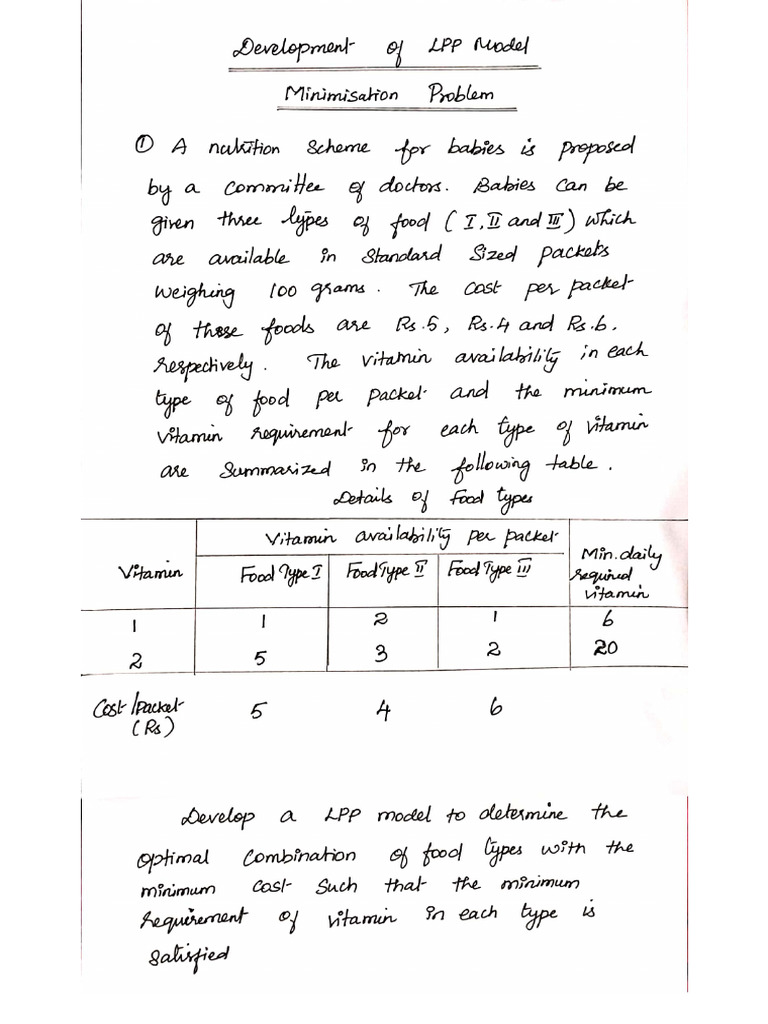 Development of LPP Model
Minimisation Problem
① A nutrition Scheme for babies is proposed
by a committee of doctors. Babies can be
given three types of food (I, II and III) which
are available in Standard Sized packets
weighing 100 grams. The cost per packet
of these foods are Rs.5, Rs.4 and Rs.6.
respectively. The vitamin availability in each
type of food per packet and the minimum
vitamin requirement for each type of vitamin
are summarized in the following table.
Details of Food types
Vitamin availability per packet
Vitamin Food Type I Food Type II Food Type III Min. daily
required
vitamin
1 1 2 1 6
2 5 3 2 20
Cost/packet 5 4 6
(Rs)
Develop a LPP model to determine the
optimal combination of food types with the
minimum cost such that the minimum
requirement of vitamin in each type is
satisfied